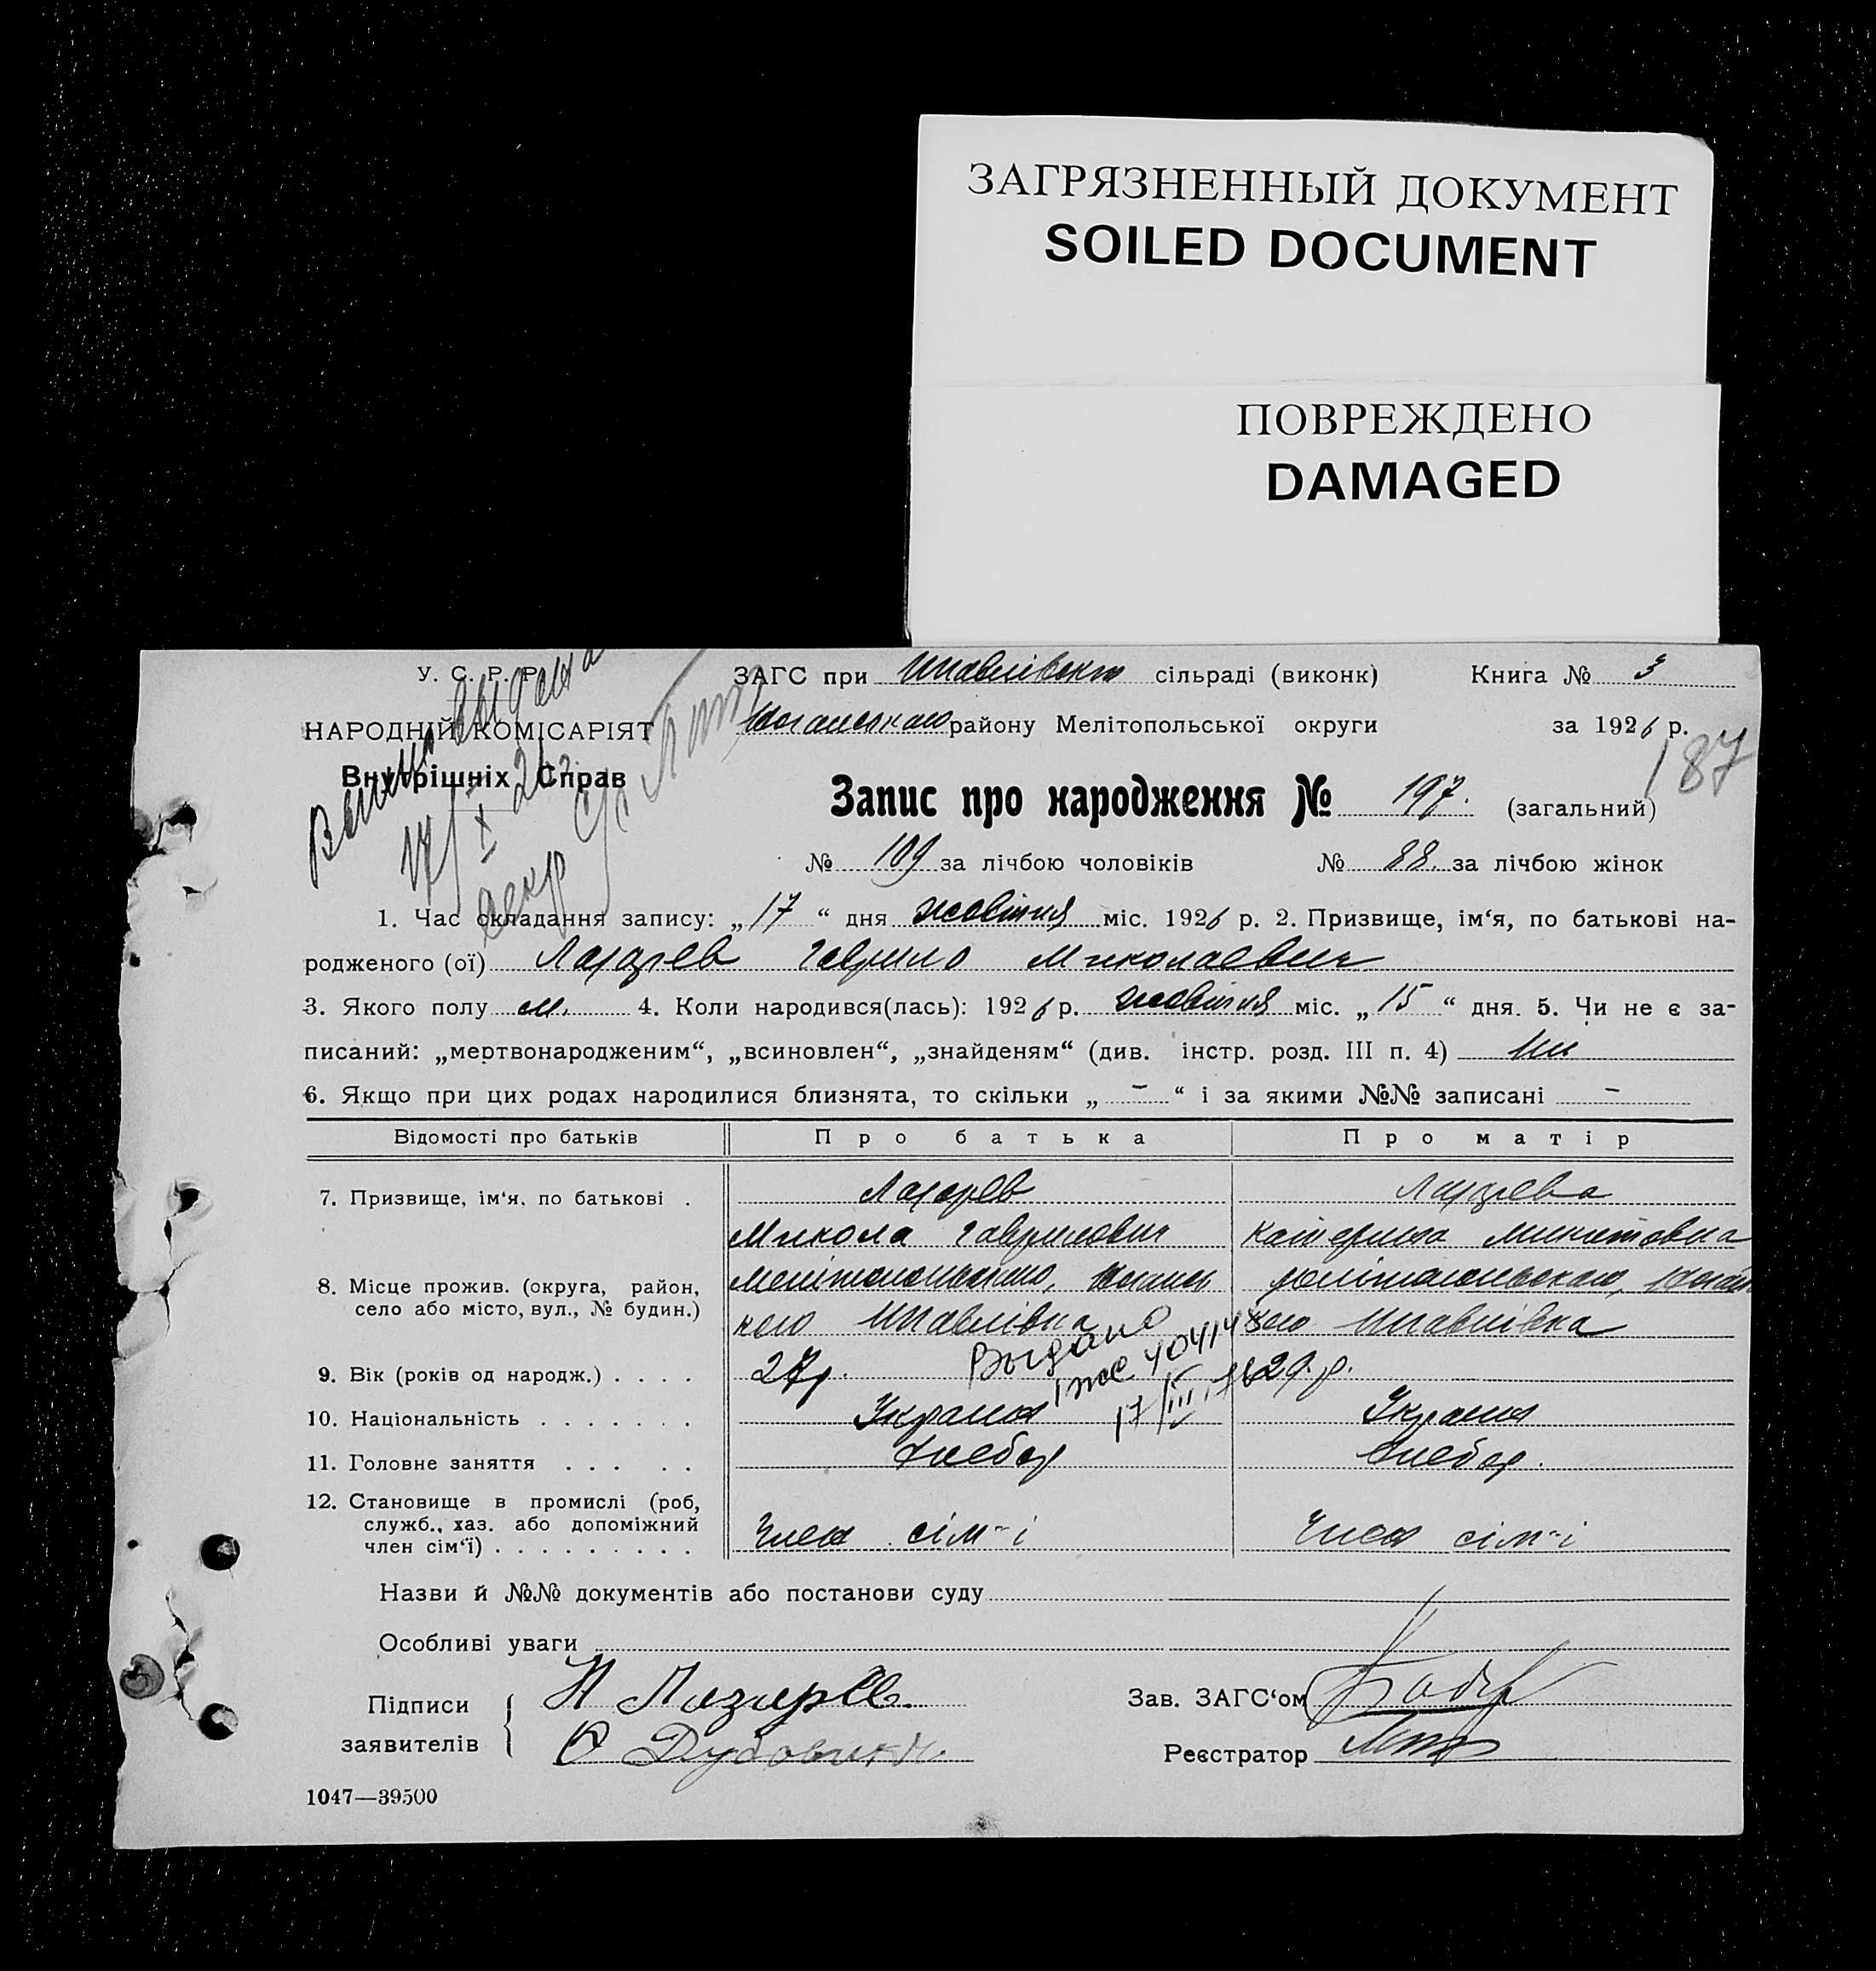 ЗАГРЯЗНЕННЫЙ ДОКУМЕНТ
SOILED DOCUMENT
ПОВРЕЖДЕНО
DAMAGED
У. С. Р. Р.
НАРОДНІЙ КОМІСАРІЯТ
Внутрішніх Справ
17/X 26
секр
ЗАГС при сільраді (виконк) Книга № 3
району Мелітопольської округи за 1926 р.
187
Запис про народження № 197. (загальний)
№ 109 за лічбою чоловіків № 88. за лічбою жінок
1. Час складання запису: „17“ дня жовтня міс. 1926 р. 2. Призвище, ім‘я, по батькові на-
родженого (ої) Лазарев Гаврило Миколаевич
3. Якого полу м. 4. Коли народився(лась): 1926 р. жовтня міс. „15“ дня. 5. Чи не є за-
писаний: „мертвонародженим“, „всиновлен“, „знайденям“ (див. інстр. розд. III п. 4) ни
6. Якщо при цих родах народилися близнята, то скільки „ - “ і за якими №№ записані -
Відомості про батьків Про батька Про матір
7. Призвище, ім‘я, по батькові . Лазарев Лазарева
Микола Гаврилович Катерина
8. Місце прожив. (округа, район,
село або місто, вул., № будин.)
9. Вік (років од народж.) . . . . 27р. 29.р.
Выдано
10. Національність . . . . . . . Украин Украин
11. Головне заняття . . . . . Хлебор Хлебор.
12. Становище в промислі (роб,
служб., хаз. або допоміжний
член сім‘ї) . . . . . . . . . Член сім"і Член сім"і
Назви й №№ документів або постанови суду
Особливі уваги
Підписи
заявителів
Н Лазарев.
Зав. ЗАГС‘ом
Реєстратор
1047—39500